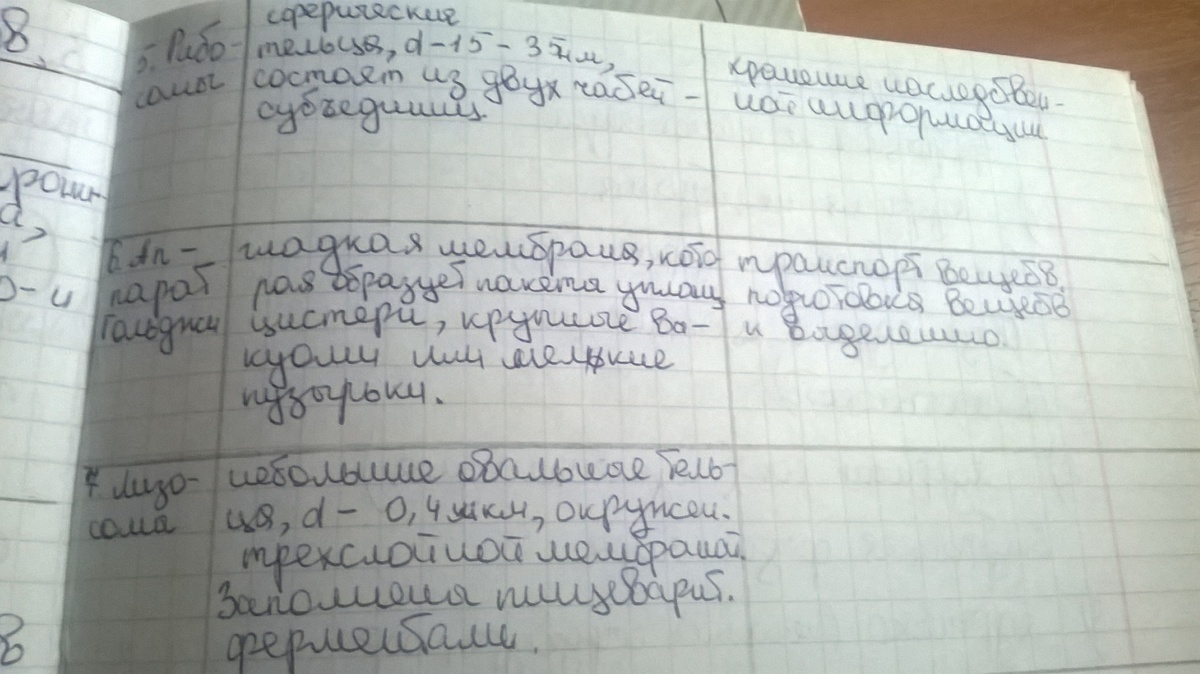 8
сферические
5. Рибо-
тельца, d-15-35нм,
сомы
состоят из двух частей -
субъединиц.
хранение наследствен-
ной информации
6. Ап-
парат
Гольджи
гладкая мембрана, кото
рая образует пакеты уплощ
цистерн, крупные ва-
куоли или мелкие
пузырьки.
транспорт веществ,
подготовка веществ
к выделению.
7. Лизо-
сома
небольшие овальные тель-
ца, d - 0,4мкм, окружен.
трехслойной мембраной.
Заполнена пищеварит.
ферментами.
в